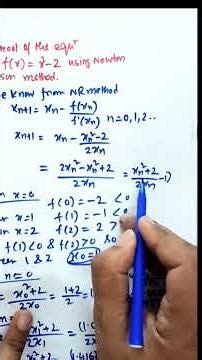 root of the equⁿ
f(x) = x²-2 using Newton
son method.
e know from NR method
xₙ₊₁ = xₙ - f(xₙ)/f'(xₙ) n=0,1,2..
xₙ₊₁ = xₙ - xₙ²-2/2xₙ
= 2xₙ²-xₙ²+2/2xₙ = xₙ²+2/2xₙ -1)
x=0 f(0) = -2 < 0
x=1 f(1) = -1 < 0
x=2 f(2) = 2 >
f(1)<0 & f(2)>0 so
1 & 2
n=0
x₀²+2/2x₀ = 1+2/2 =
x₁²+2/2x₁ =